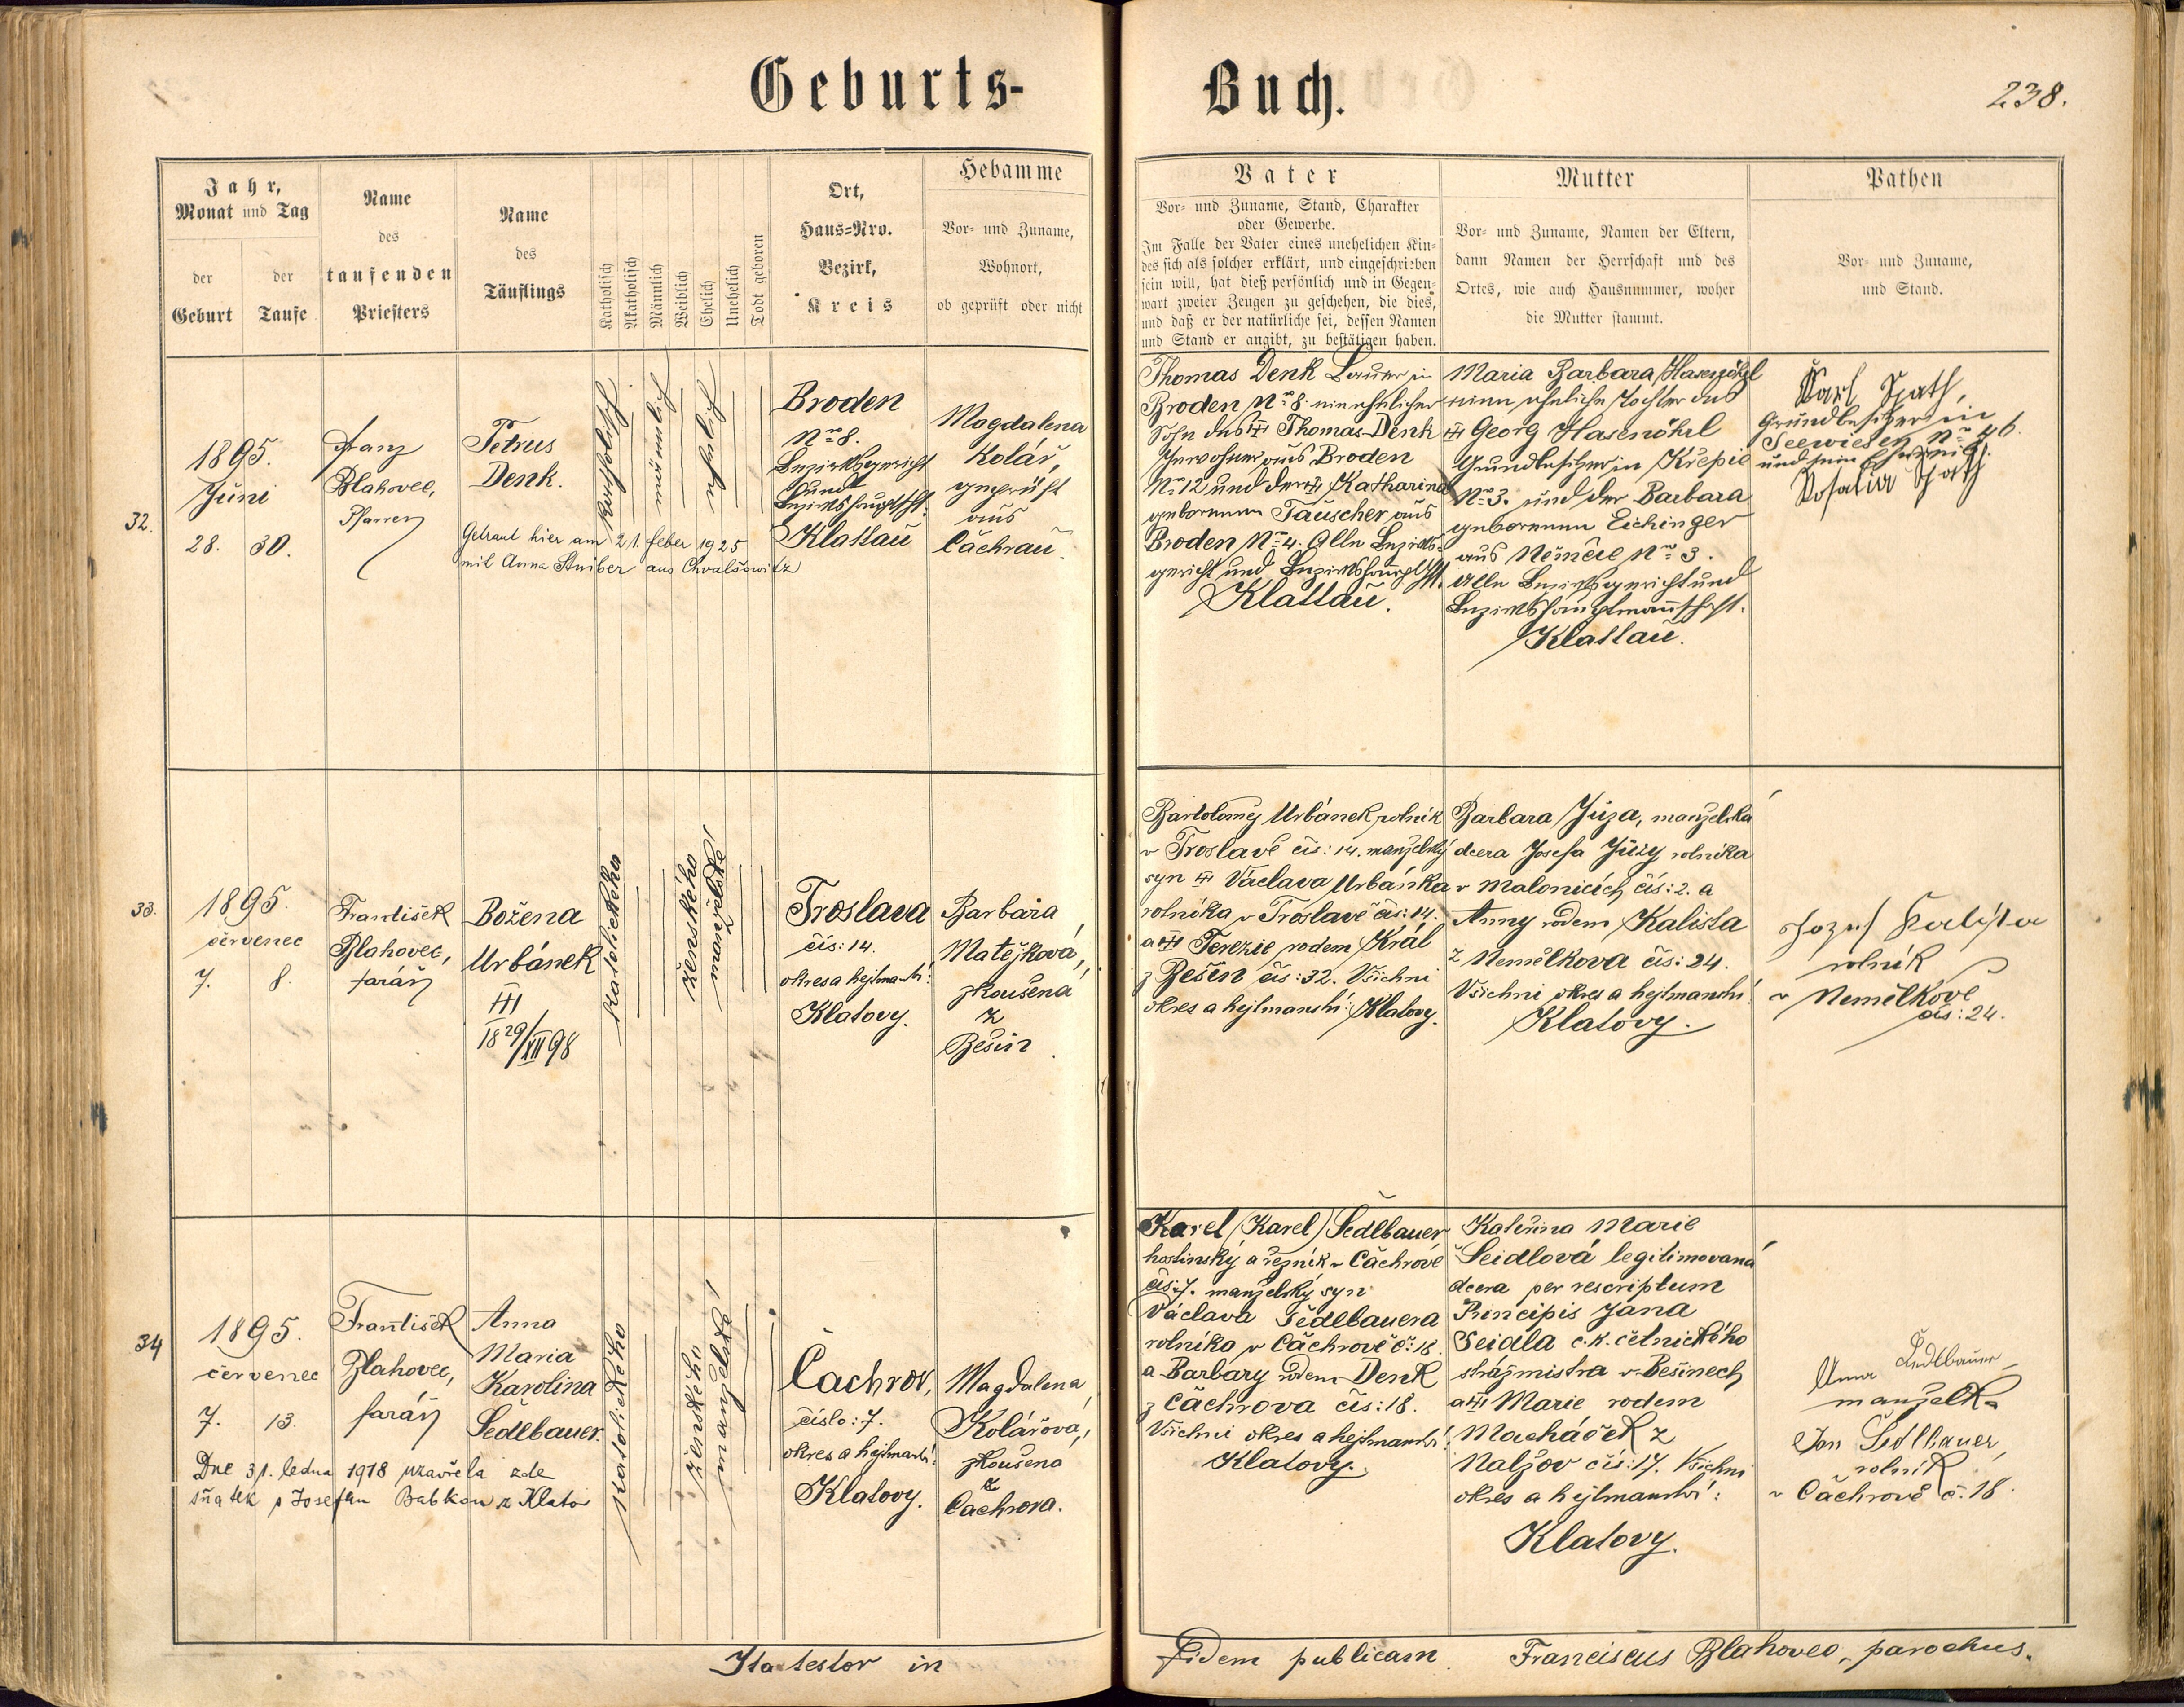 Geburts-
Buch.
238.
Jahr,
Monat und Tag
der
Geburt
der
Taufe
Name
des
taufenden
Priesters
Name
des
Täuflings
Katholisch
Akatholisch
Männlich
Weiblich
Ehelich
Unehelich
Todt geboren
Ort,
Haus=Nro.
Bezirk,
Kreis
Hebamme
Vor- und Zuname,
Wohnort,
ob geprüft oder nicht
Vater
Vor- und Zuname, Stand, Charakter
oder Gewerbe.
Im Falle der Vater eines unehelichen Kin-
des sich als solcher erklärt, und eingeschrieben
sein will, hat dieß persönlich und in Gegen-
wart zweier Zeugen zu geschehen, die dies,
und daß er der natürliche sei, dessen Namen
und Stand er angibt, zu bestätigen haben.
Mutter
Vor- und Zuname, Namen der Eltern,
dann Namen der Herrschaft und des
Ortes, wie auch Hausnummer, woher
die Mutter stammt.
Pathen
Vor- und Zuname,
und Stand.
32.
1895.
Juni
28. 30.
Franz
Blahovec,
Pfarrer
Petrus
Denk.
Getraut hier am 21. feber 1925
mit Anna Stuiber aus Chvalšowitz
katholisch
männlich
ehelich
Broden
Nro 8.
Bezirksgericht
und
Bezirkshauptsch.
Klattau
Magdalena
Kolář,
geprüft
aus
Čachrau.
Thomas Denk Bauer in
Broden Nro 8. ein ehelicher
Sohn des Thomas Denk
Inwohner aus Broden
Nro 12 und der Katharina
geborenen Tauscher aus
Broden Nro 4. Alle Bezirks-
gericht und Bezirkshauptsch.
Klattau.
Maria Barbara Hasenöhrl
eine eheliche Tochter des
Georg Hasenöhrl
Grundbesitzer in Křepic
Nro 3. und der Barbara
geborenen Eichinger
aus Němčic Nro 3.
Alle Bezirksgericht und
Bezirkshauptmannschaft.
Klattau.
Karl Spath,
Grundbesitzer in
Seewiesen Nro 46.
und sein Eheweib.
Rosalia Spath
33.
1895.
červenec
7. 8.
František
Blahovec,
farář
Božena
Urbánek
18 29/XII 98
katolického
ženského
manželské
Troslava
čís: 14.
okres a hejtmanství:
Klatovy.
Barbara
Matějková,
zkoušená
z
Bešin.
Bartoloměj Urbánek rolník
v Troslavě čís: 14. manželský
syn Václava Urbánka
rolníka v Troslavě čís: 14.
a Terezie rodem Král
z Bešin čís: 32. Všichni
okres a hejtmanství: Klatovy.
Barbara Jůza, manželská
dcera Josefa Jůzy rolníka
v Malonicích čís: 2. a
Anny rodem Kalista
z Nemělkova čís: 24.
Všichni okres a hejtmanství
Klatovy.
Jozef Kalista
rolník
v Nemělkově
čís: 24.
34
1895.
červenec
7. 13.
František
Blahovec,
farář
Anna
Maria
Karolina
Sedlbauer.
Dne 31. ledna 1918 uzavřela zde
sňatek s Josefem Babkou z Klatov
katolického
ženského
manželské
Čachrov,
číslo: 7.
okres a hejtmanství:
Klatovy.
Magdalena
Kolářová,
zkoušena
z
Čachrova.
Karel (Karel) Sedlbauer
hostinský a řezník v Čachrově
čís: 7. manželský syn
Václava Sedlbauera
rolníka v Čachrově č: 18
a Barbary rodem Denk
z Čachrova čís: 18.
Všichni okres a hejtmanství:
Klatovy.
Kateřina Marie
Seidlová legitimovaná
dcera per rescriptum
Principis Jana
Seidla c. k. četnického
strážmistra v Bešinech
a Marie rodem
Macháček z
Nalžov čís: 17. Všichni
okres a hejtmanství:
Klatovy.
Anna Sedlbauer
manželka
Jan Sedlbauer,
rolník
v Čachrově č. 18.
Ita testor in
Fidem publicam
Franciscus Blahovec, parochus.